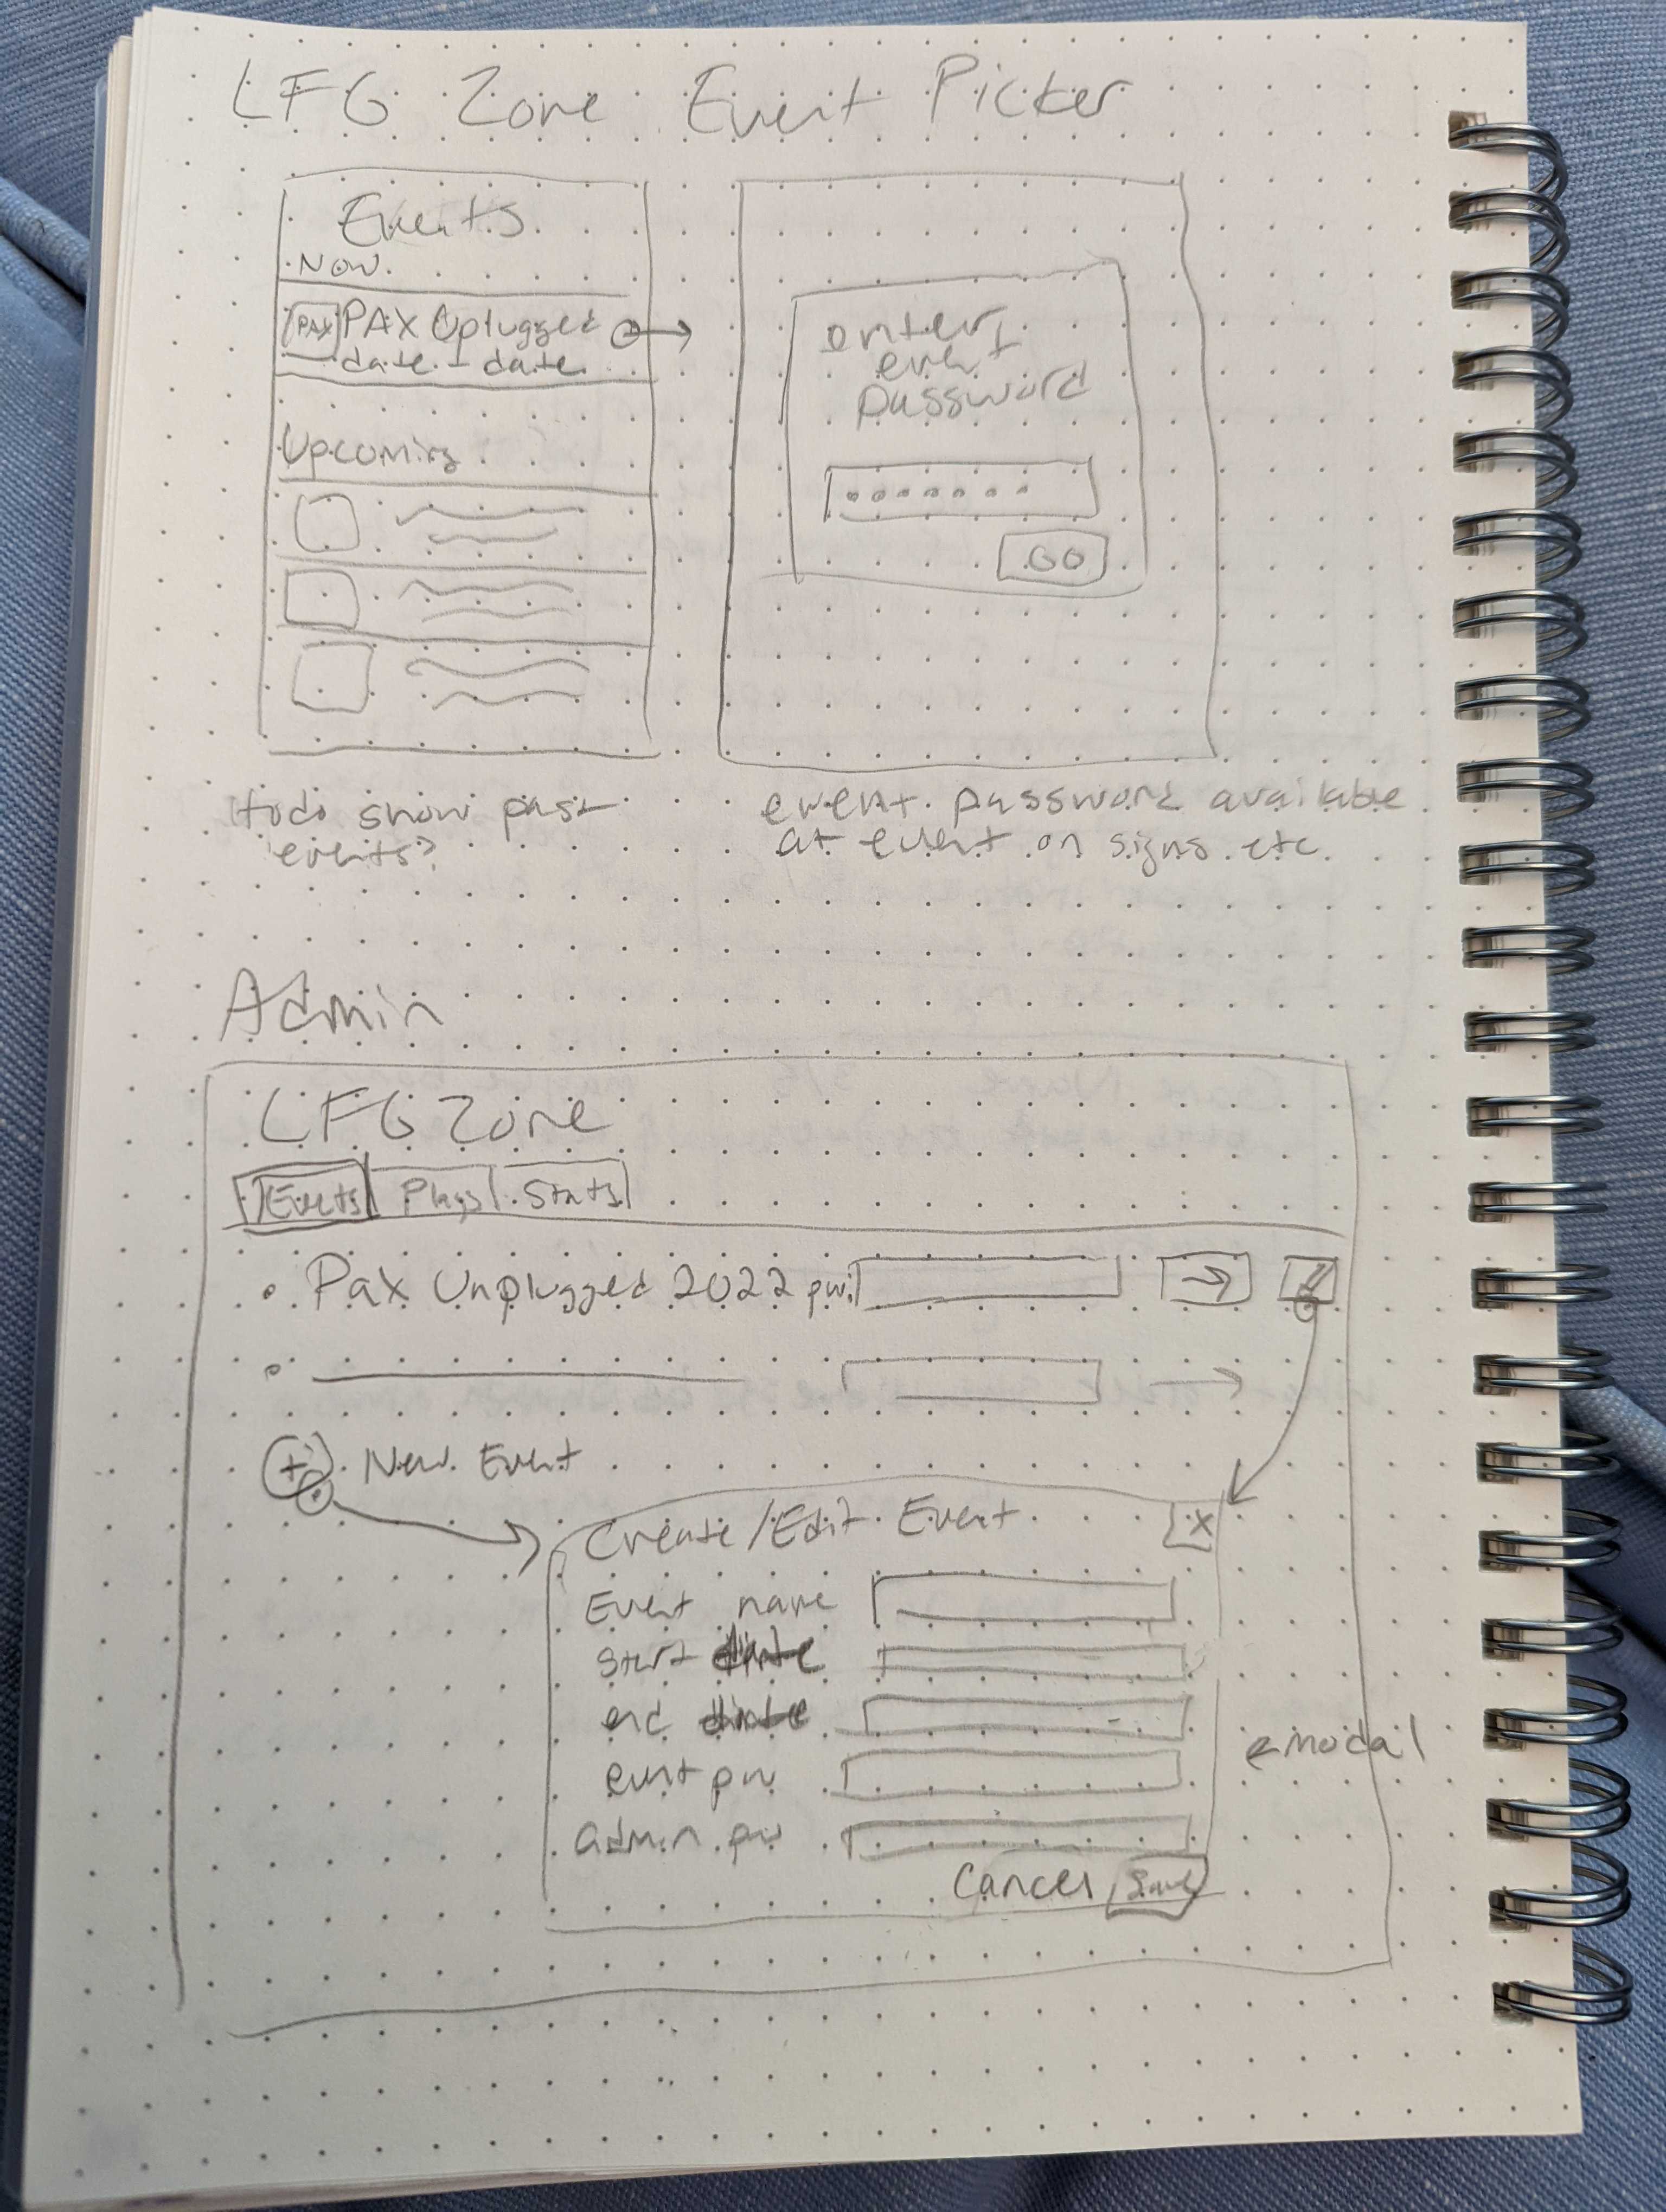 LFG Zone Event Picker
Events
Now
PAX PAX Uplugged
date - date
Upcoming
enter
event
password
GO
todo show past
events?
event password available
at event on signs etc.
Admin
LFG Zone
Events Plays Stats
Pax Unplugged 2022 pw:
+ New Event
Create/Edit Event X
Event name
start
end
event pw
admin pw
Cancel Save
modal